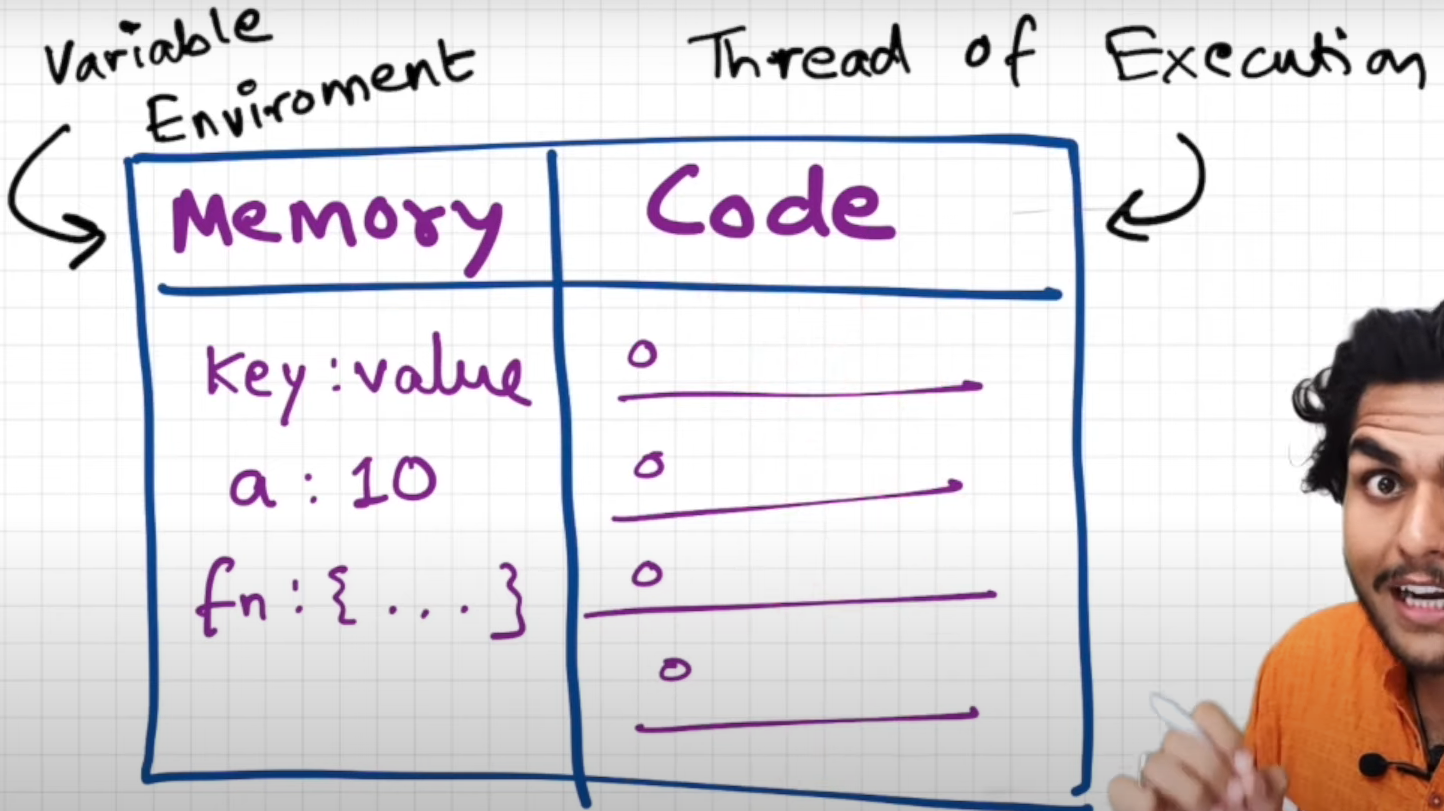 Variable
Enviroment
Thread of Execution
Memory
Code
key : value
a : 10
fn : { ... }
o
o
o
o